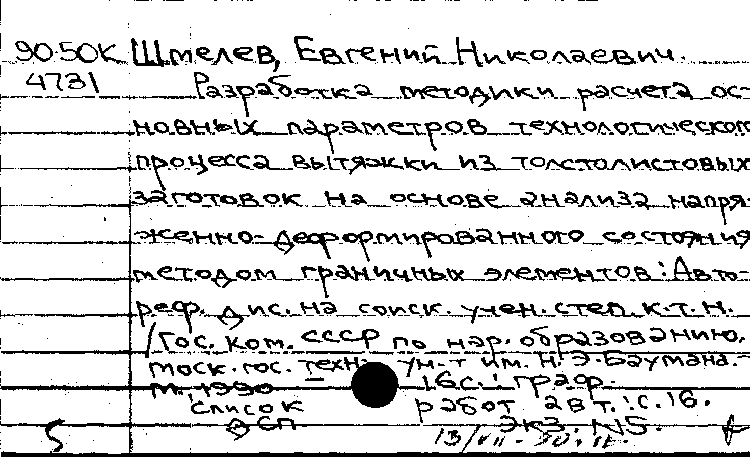 90-50К Шмелев, Евгений Николаевич.
4731 Разработка методики расчета ос-
новных параметров технологического
процесса вытяжки из толстолистовых
заготовок на основе анализа напря-
женно-деформированного состояния
методом граничных элементов: Авто-
реф. дис. на соиск. учен. степ. к.т.н.
/Гос. ком. СССР по нар. образованию.
Моск. гос. техн. ун-т им. Н.Э. Баумана.-
М., 1990 16с.: граф.
Список работ авт.: с.16.
ДСП Экз. N5.
5 13/VII-90г.